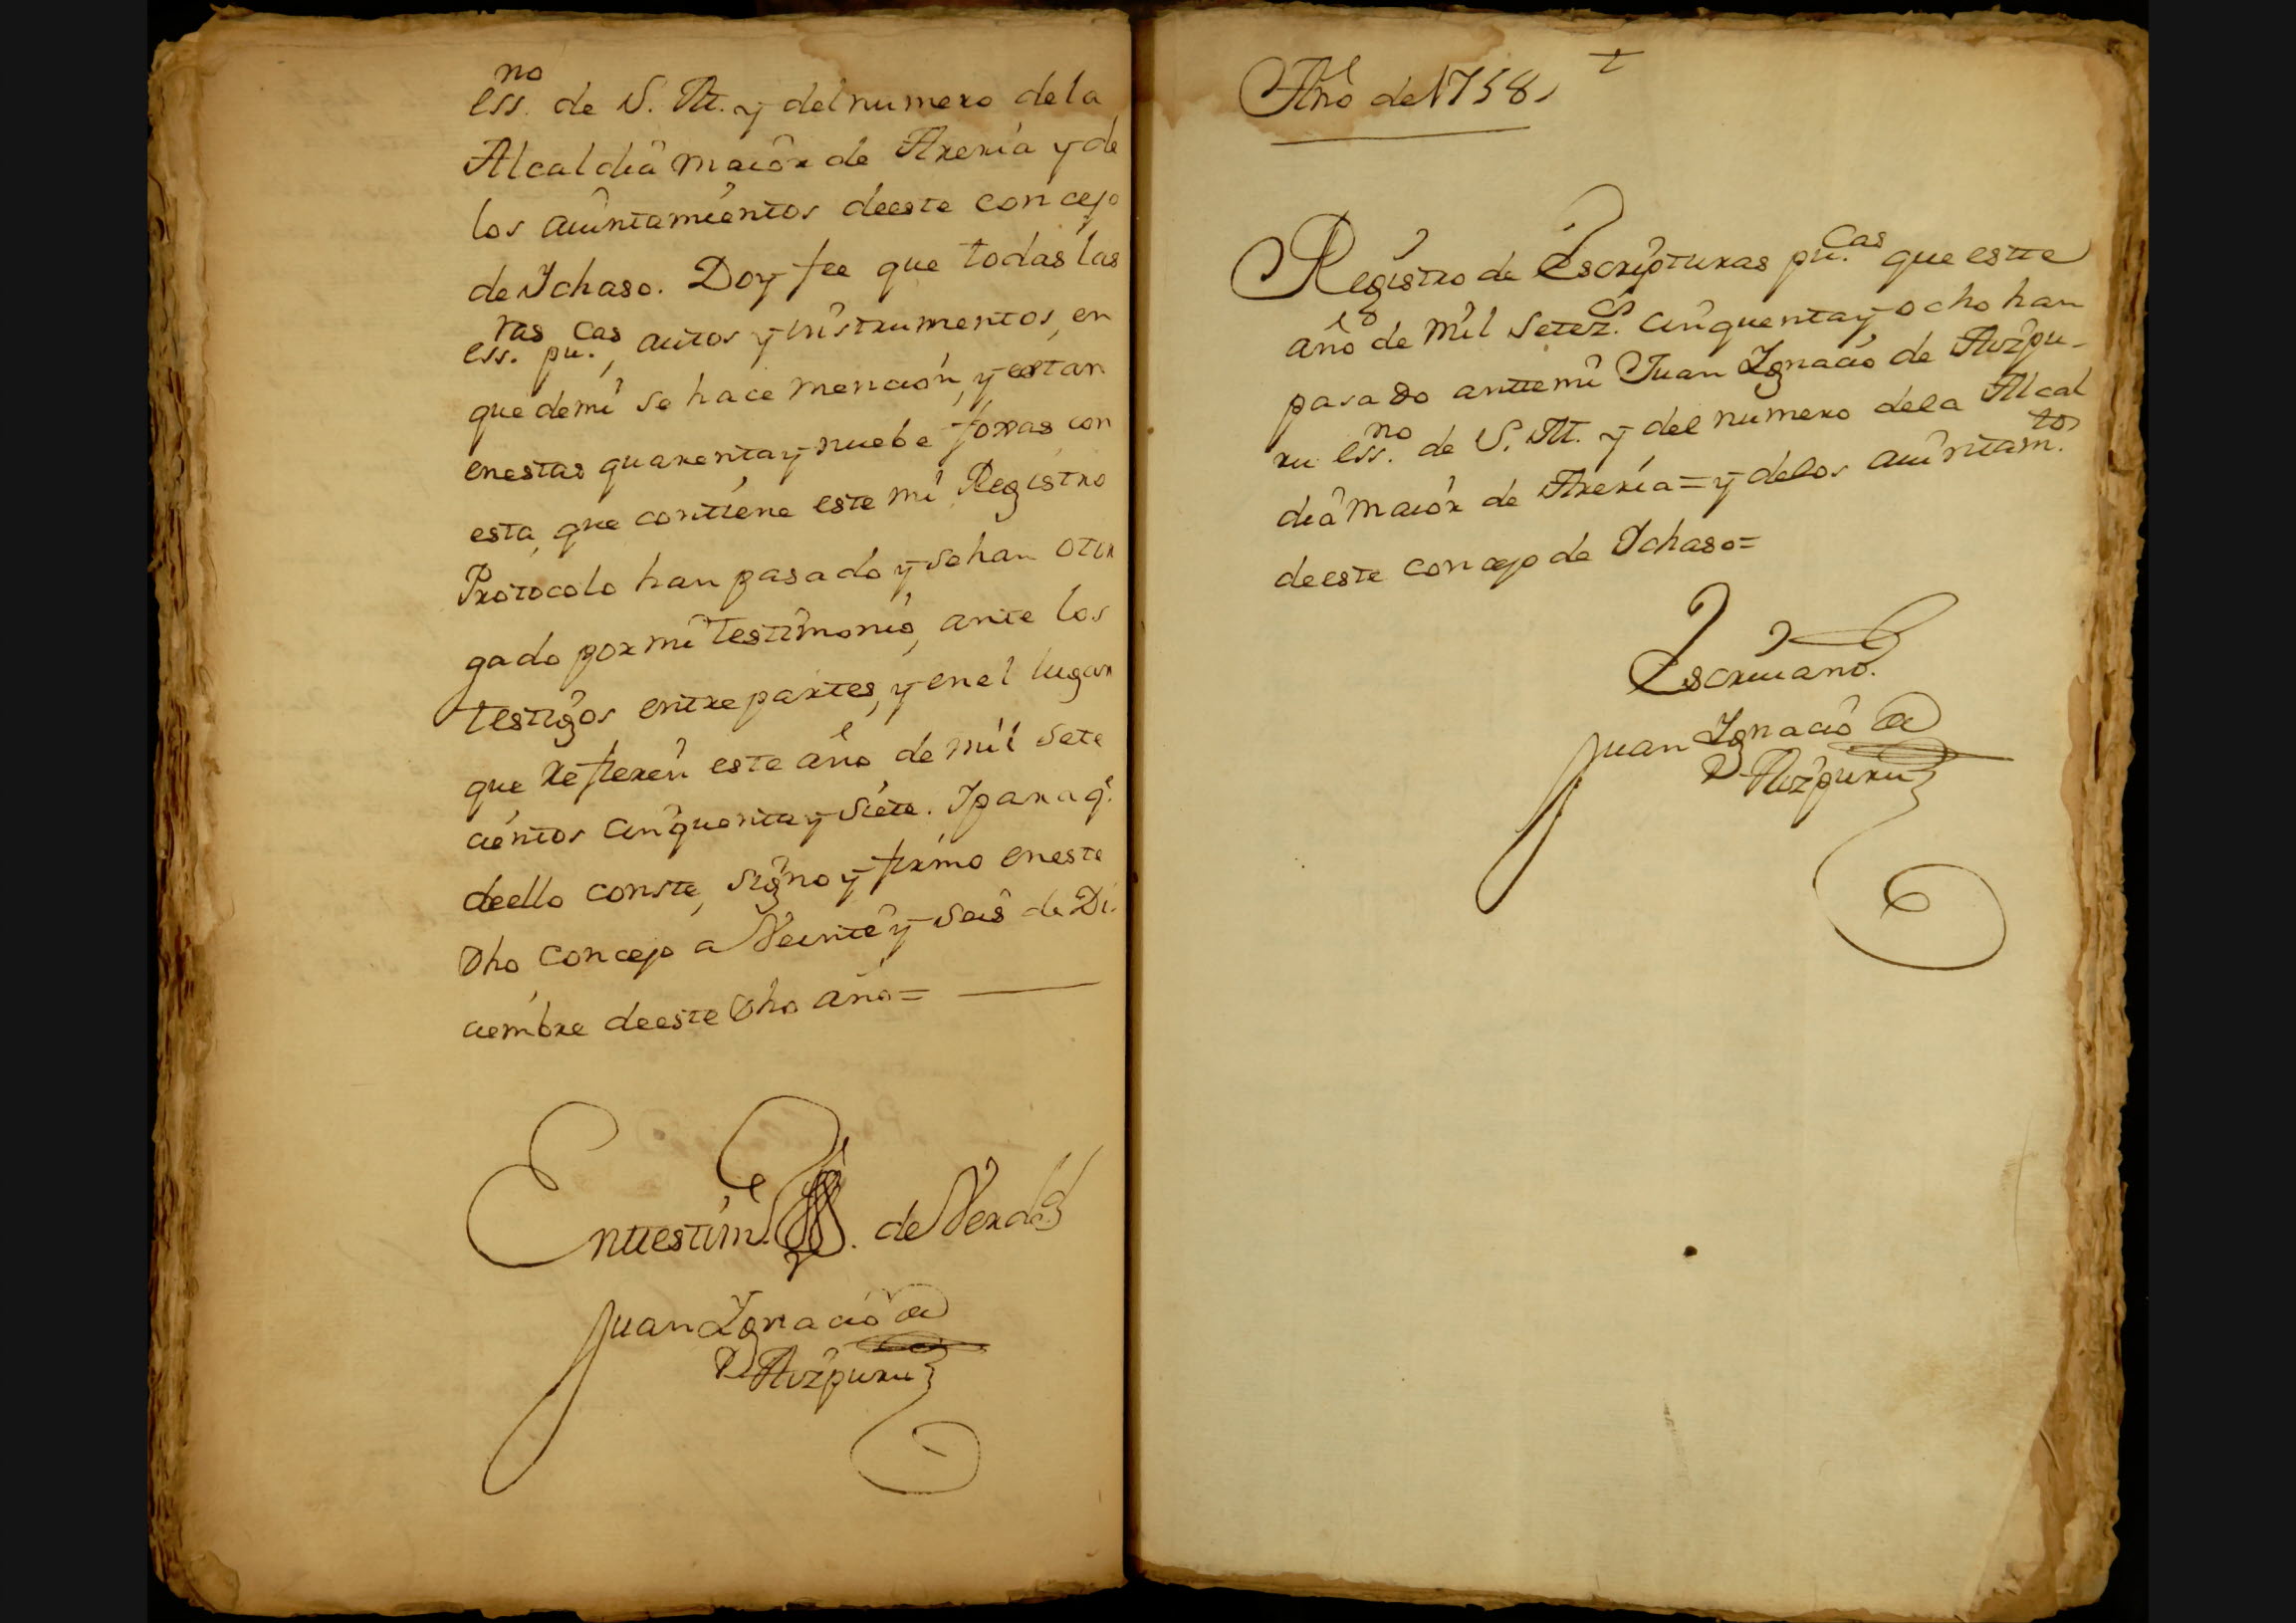 essno. de S. M. y del numero de la
Alcaldia maior de Areria y de
los auintamientos deeste concejo
de Ichaso. Doy fee que todas las
essras. pucas., autos y instrumentos, en
que demi se hace mencion, y estan
enestas quarenta y nuebe foxas con
esta, que contiene este mi Registro
Protocolo han pasado y sehan otor
gado por mi testimonio, ante los
testigos entrepartes, y enel lugar
que refieren este año de mil sete
cientos cinquenta y siete. Ipara qe.
deello conste, signo y firmo eneste
dho concejo a Veinte y seis de Di-
ciembre deeste dho año=
Enttestim. . de Verdad
Juan Ignacio de
Aizpuru
Año de 1758
Registro de Escripturas pucas. que estte
año de mil setezs. cinquenta y ocho han
pasado anttemi Juan Ignacio de Aizpu-
ru essno. de S. M. y del numero dela Alcal
dia maior de Areria = y delos auintamtos.
deeste concejo de Ichaso=
Escriuano.
Juan Ignacio de
Aizpuru